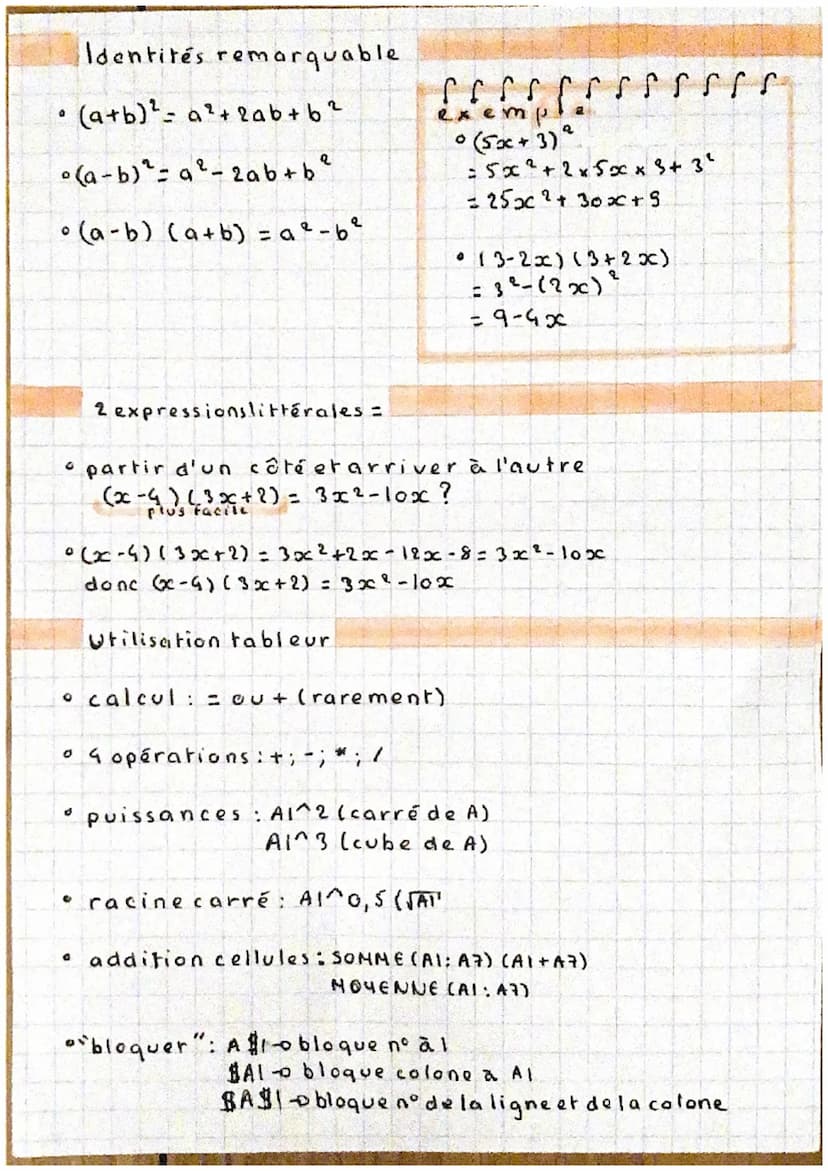 Identités remarquable
• (a+b)² = a² + 2ab + b²
• (a-b)² = a² - 2ab + b²
• (a-b) (a+b) = a² - b²
exemple
• (5x + 3)²
= 5x² + 2 x 5x x 3 + 3²
= 25x² + 30x + 9
• (3-2x) (3+2x)
= 3² - (2x)²
= 9-4x
2 expressions littérales =
• partir d'un côté et arriver à l'autre
(x-4) (3x+2) = 3x² - 10x ?
plus facile
• (x-4) (3x+2) = 3x² + 2x - 12x - 8 = 3x² - 10x
donc (x-4) (3x+2) = 3x² - 10x
Utilisation tableur
• calcul : = ou + (rarement)
• 4 opérations : + ; - ; * ; /
• puissances : A1^2 (carré de A)
A1^3 (cube de A)
• racine carré : A1^0,5 (√A1
• addition cellules : SOMME (A1 : A7) (A1 + A7)
MOYENNE (A1 : A7)
• "bloquer" : A$1 → bloque n° à 1
$A1 → bloque colone à A1
$A$1 → bloque n° de la ligne et de la colone